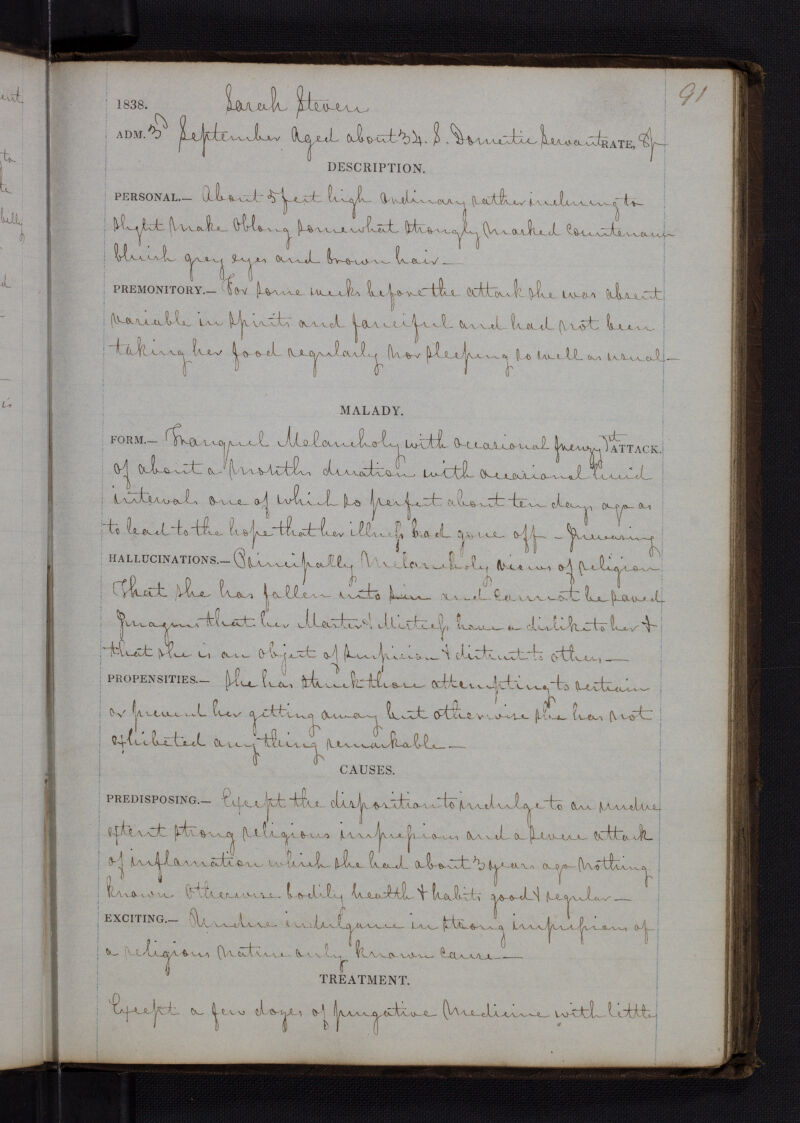 91
1838. Sarah Steven
ADM. 3d September Aged about 34. S. Domestic Servant RATE,
DESCRIPTION.
PERSONAL.— About 5 feet high ordinary rather inclining to
slight make Oblong somewhat strongly marked Countenance
bluish grey eyes and brown hair—
PREMONITORY.— For some weeks before the attack she was absent
variable in spirits and fanciful and had not been
taking her food regularly nor sleeping so well as usual—
MALADY.
FORM.— Tranquil Melancholy with occasional frenzy 1st ATTACK.
of about a months duration with occasional lucid
intervals one of which so perfect about ten days ago as
to lead to the hope that her illness had gone off – Increasing
HALLUCINATIONS.— Principally Melancholy views of religion
That she has fallen into sin and cannot be saved
Imagines that her Master & Mistress have a dislike to her &
that she is an object of suspicion & distrust to others—
PROPENSITIES.— She has struck those attempting to restrain
or prevent her getting away but otherwise she has not
exhibeted any thing remarkable—
CAUSES.
PREDISPOSING.— Except the disposition to indulge to an undue
extent strong religious impressions and a severe attack
of inflamation which she had about 3 years ago Nothing
known Otherwise bodily health & habits good & regular—
EXCITING.— Undue indulgance in strong impressions of
a religious nature only known cause—
TREATMENT.
Except a few dozes of purgative Medicine with little